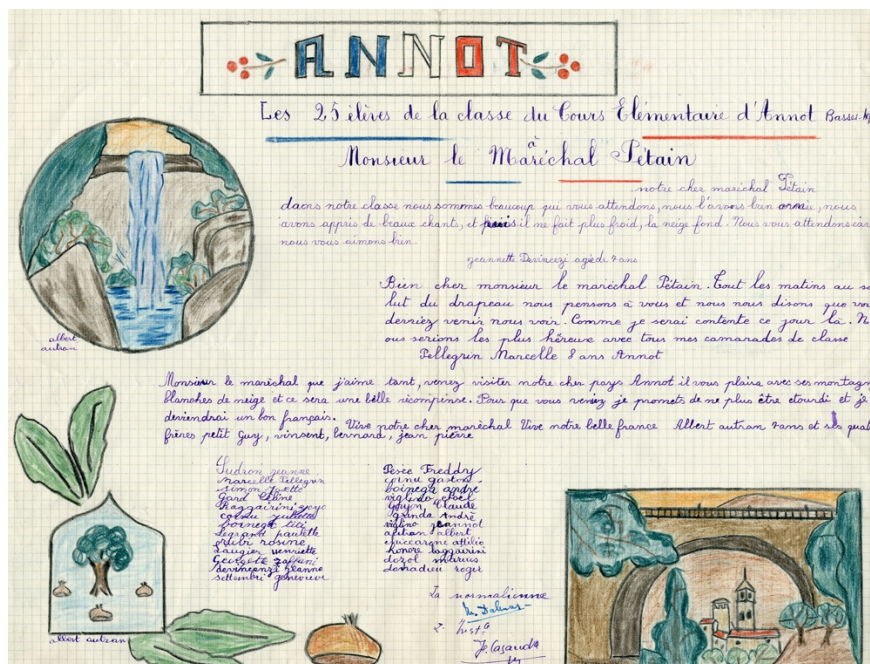 ANNOT
Les 25 élèves de la classe du Cours Elémentaire d'Annot Basses-Alp
à
Monsieur le Maréchal Pétain
notre cher maréchal Pétain
dans notre classe nous sommes beaucoup qui vous attendons, nous l'avons bien ornée, nous
avons appris de beaux chants, et puis il ne fait plus froid, la neige fond. Nous vous attendons car
nous vous aimons bien.
jeannette Devincezi agée de 7 ans
Bien cher monsieur le maréchal Pétain. Tout les matins au sa
lut du drapeau nous pensons à vous et nous nous disons que vou
devriez venir nous voir. Comme je serai contente ce jour là. N
ous serions les plus héreux avec tous mes camarades de classe
Pellegrin Marcelle 8 ans Annot
albert
autran
Monsieur le maréchal que j'aime tant, venez visiter notre cher pays Annot il vous plaira avec ses montagn
blanches de neige et ce sera une belle récompense. Pour que vous veniez je promets de ne plus être etourdi et je
deviendrai un bon français.
Vive notre cher maréchal Vive notre belle france Albert autran 7 ans et ses quat
frères petit Guy, vinsent, bernard, jean pierre
Sudron jeanne
marcelle Pellegrin
simon josette
Gard Céline
cornu juliette
boinega titi
Segrand paulette
rosine
Laugier henriette
Georgette zaffuni
devincenzi jeanne
settembri genevieve
Pesce Freddy
cornu gaston
boinega andré
viglino abel
Goujon Claude
granda André
viglino jeannot
autran albert
chiccargne attilio
honoré laggarini
dozol marius
donadieu roger
La normalienne
M. Dalmas
L' Inst.
J. Casanda
albert autran